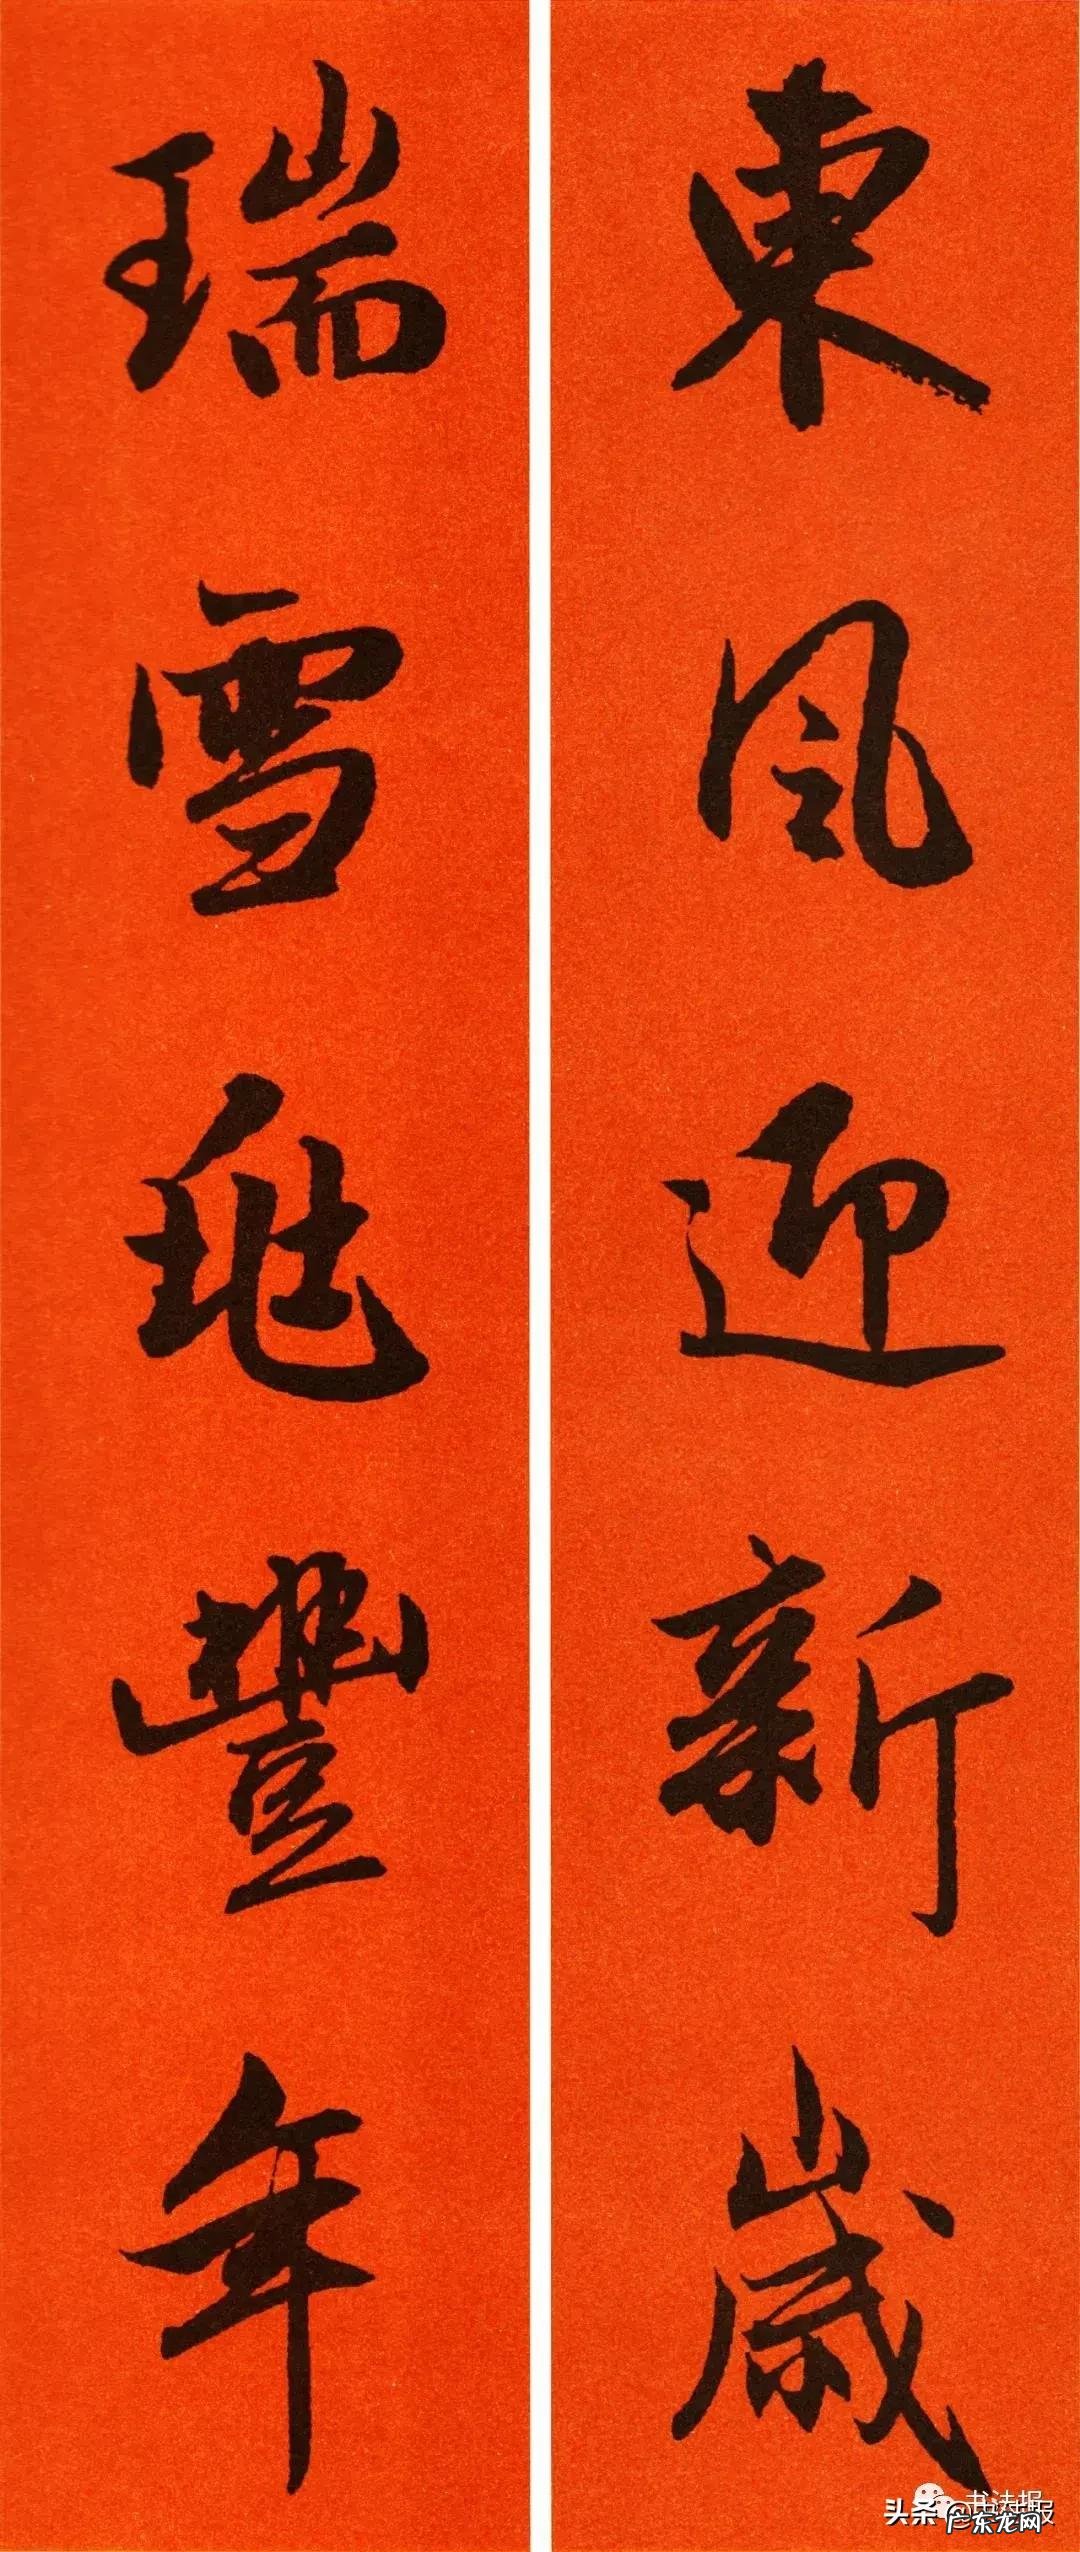 東風迎新歲
瑞雪兆豐年
头条
书法报
广东龙网